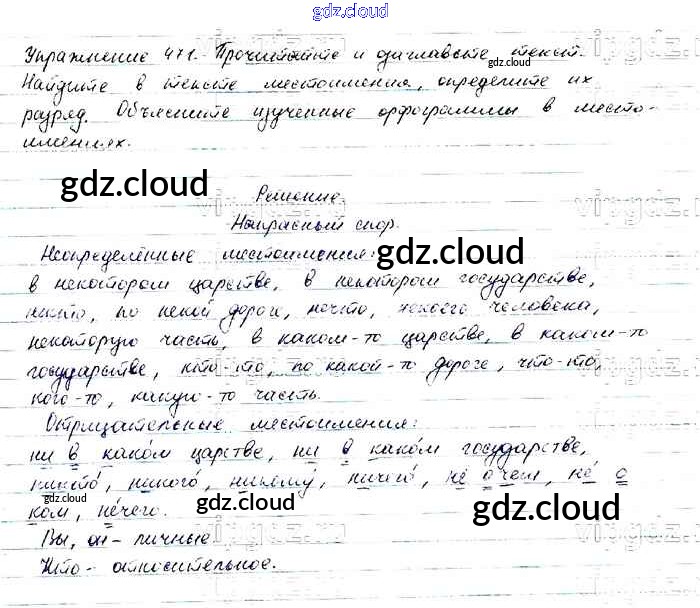 gdz.cloud
Упражнение 471. Прочитайте и озаглавьте текст.
Найдите в тексте местоимения, определите их
разряд. Объясните изученные орфограммы в место-
имениях.
Решение.
Напрасный спор.
Неопределённые местоимения:
в некотором царстве, в некотором государстве,
некто, по некой дороге, нечто, некоего человека,
некоторую часть, в каком-то царстве, в каком-то
государстве, кто-то, по какой-то дороге, что-то,
кого-то, какую-то часть.
Отрицательные местоимения:
ни в каком царстве, ни в каком государстве,
никто, никого, никому, ничего, не о чем, не о
ком, нечего.
Вы, он - личные.
Что - относительное.